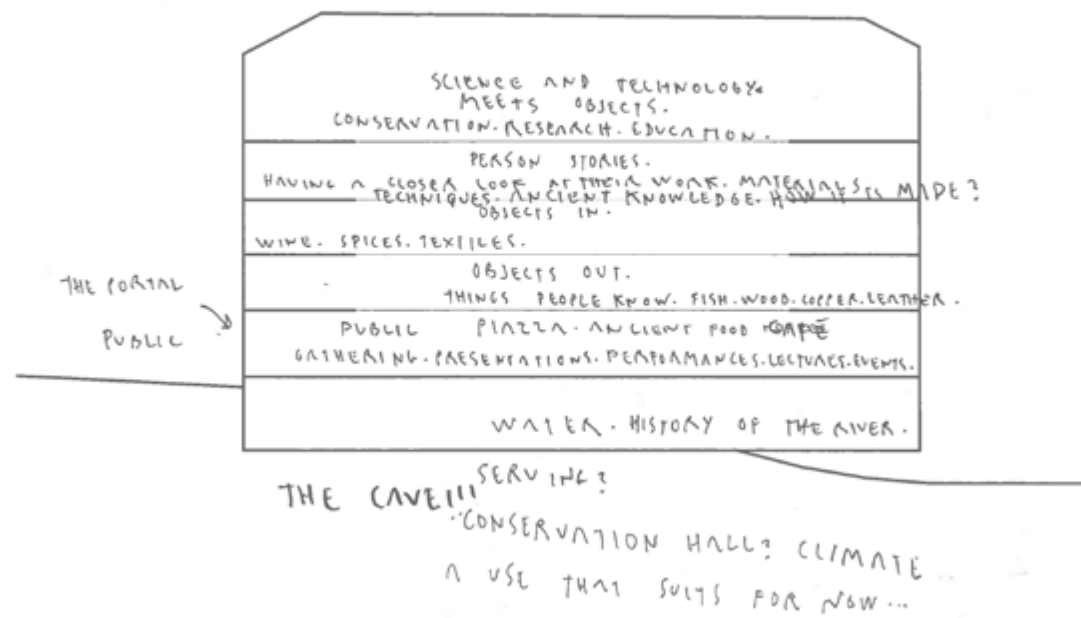 SCIENCE AND TECHNOLOGY.
MEETS OBJECTS.
CONSERVATION. RESEARCH. EDUCATION.
PERSON STORIES.
HAVING A CLOSER LOOK AT THEIR WORK. MATERIALS
TECHNIQUES. ANCIENT KNOWLEDGE. HOW IT IS MADE?
OBJECTS IN.
WINE. SPICES. TEXTILES.
OBJECTS OUT.
THINGS PEOPLE KNOW. FISH. WOOD. COPPER. LEATHER.
THE PORTAL
PUBLIC
PUBLIC PIAZZA. ANCIENT FOOD CAFÉ
GATHERING. PRESENTATIONS. PERFORMANCES. LECTURES. EVENTS.
WATER. HISTORY OF THE RIVER.
THE CAVE!!!
SERVING?
CONSERVATION HALL? CLIMATE...
A USE THAT SUITS FOR NOW...